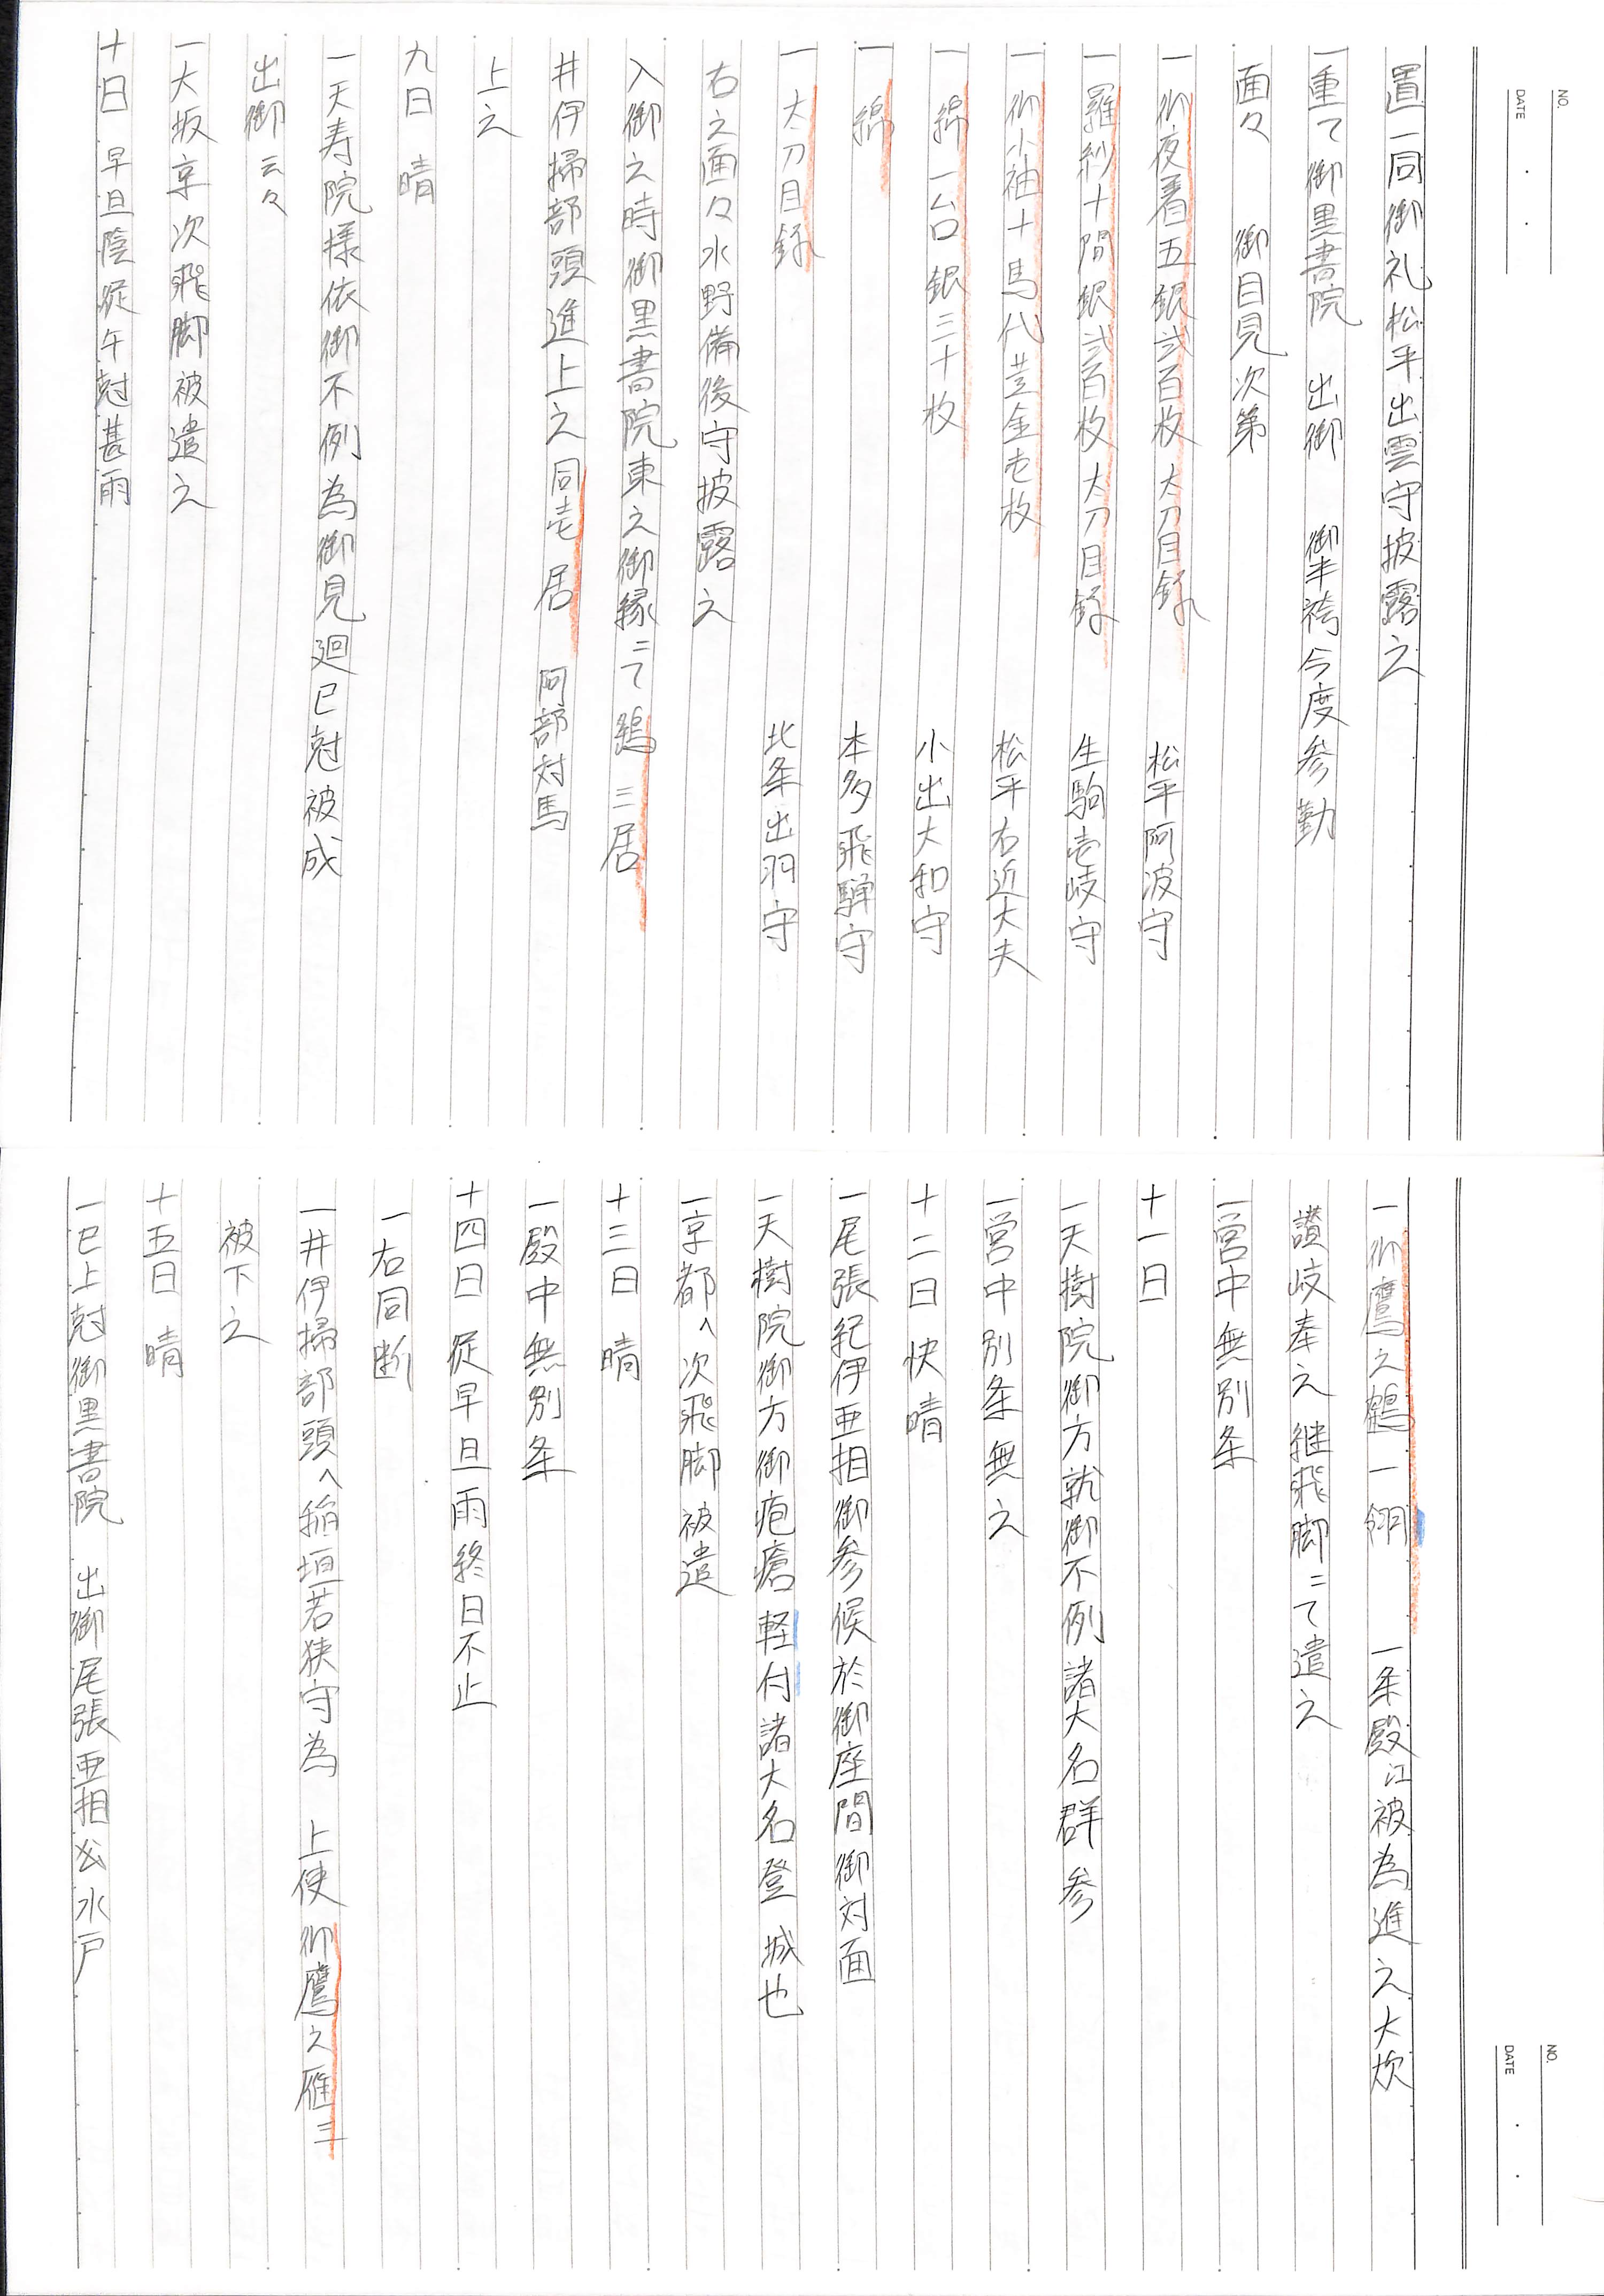 NO.
DATE
置一同御礼松平出雲守披露之
一重て御黒書院　出御　御半袴今度参勤
面々　御目見次第
一御夜着五銀弐百枚太刀目録　松平阿波守
一羅紗十間銀弐百枚太刀目録　生駒壱岐守
一御小袖十馬代黄金壱枚　松平右近大夫
一綿一台銀三十枚　小出大和守
一綿　本多飛騨守
一太刀目録　北条出羽守
右之面々水野備後守披露之
入御之時御黒書院東之御縁ニて鶴三居
井伊掃部頭進上之同壱居　阿部対馬
上之
九日　晴
一天寿院様依御不例為御見廻巳尅被成
出御云々
一大坂京次飛脚被遣之
十日　早旦陰従午尅甚雨
NO.
DATE
一御鷹之鶴一翎　一条殿江被為進之大炊
讃岐奉之継飛脚ニて遣之
一営中無別条
十一日
一天樹院御方就御不例諸大名群参
一営中別条無之
十二日快晴
一尾張紀伊亜相御参候於御座間御対面
一天樹院御方御疱瘡軽付諸大名登城也
一京都へ次飛脚被遣
十三日　晴
一殿中無別条
十四日　従早旦雨終日不止
一右同断
一井伊掃部頭へ稲垣若狭守為　上使御鷹之雁三
被下之
十五日　晴
一巳上尅御黒書院　出御尾張亜相公水戸